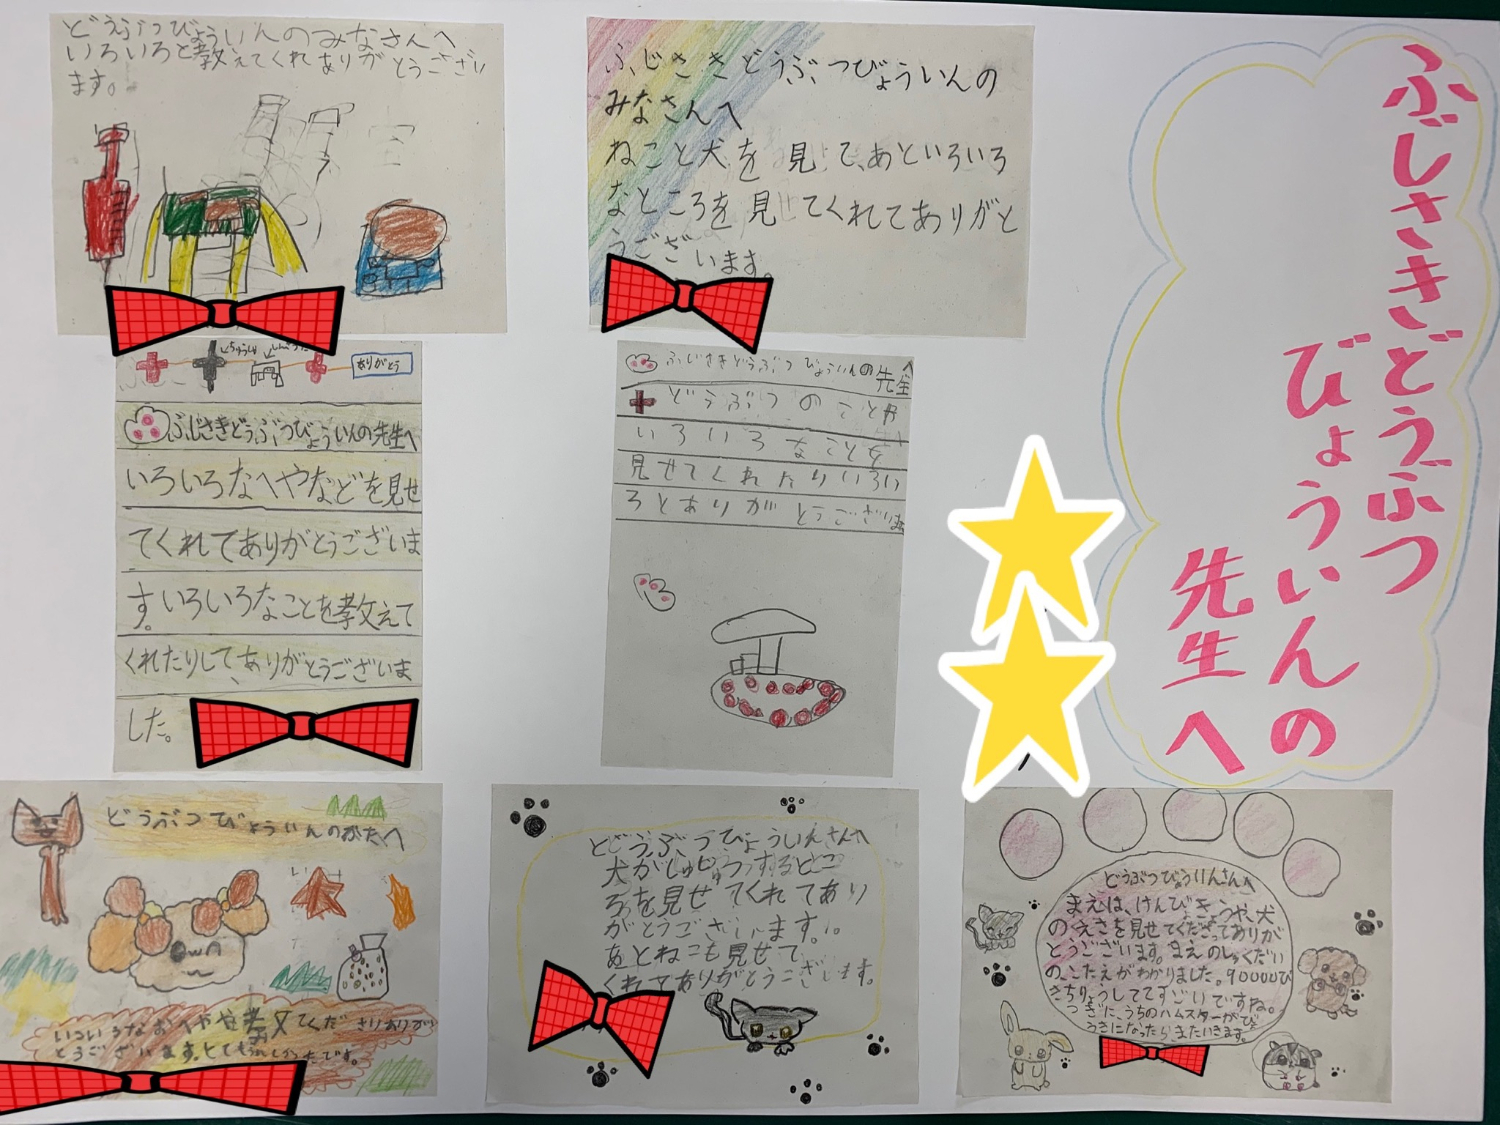 ふじさきどうぶつ
びょういんの
先生へ
どうぶつびょういんのみなさんへ
いろいろと教えてくれありがとうござい
ます。
ふじさきどうぶつびょういんの
みなさんへ
ねこと犬を見て、あといろいろ
なところを見せてくれてありがと
うございます。
ちゅうしゃ
ありがとう
ふじさきどうぶつびょういんの先生へ
いろいろなへやなどを見せ
てくれてありがとうございま
す。いろいろなことを教えて
くれたりして、ありがとうございま
した。
ふじさきどうぶつびょういんの先生へ
どうぶつのことや
いろいろなことを
見せてくれたりいろい
ろとありがとうございます
どうぶつびょういんのかたへ
いろいろなおへやを教えてくださりありがと
うございます。とてもうれしかったです。
どうぶつびょういんさんへ
犬がしゅじゅつするとこ
ろを見せてくれてあり
がとうございます。
あとねこも見せて
くれてありがとうございます。
どうぶつびょういんさんへ
まえは、けんびきょうや、犬
のえさを見せてくださってありが
とうございます。まえのしゅくだい
のこたえがわかりました。90000び
きちりょうしててすごいですね。
つぎに、うちのハムスターがびょ
うきになったら、またいきます。